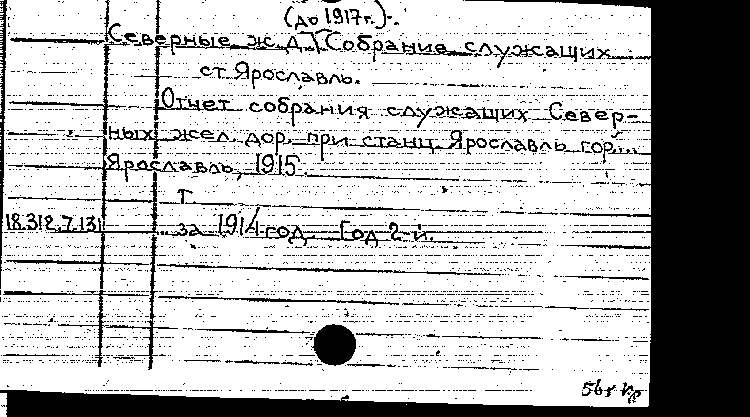 (до 1917г.)-.
Северные ж.д. Собрание служащих
ст. Ярославль.
Отчет собрания служащих Север-
ных жел. дор. при станц. Ярославль гор...
Ярославль, 1915
Т
18.312.7.131 за 1914 год. Год 2-й.